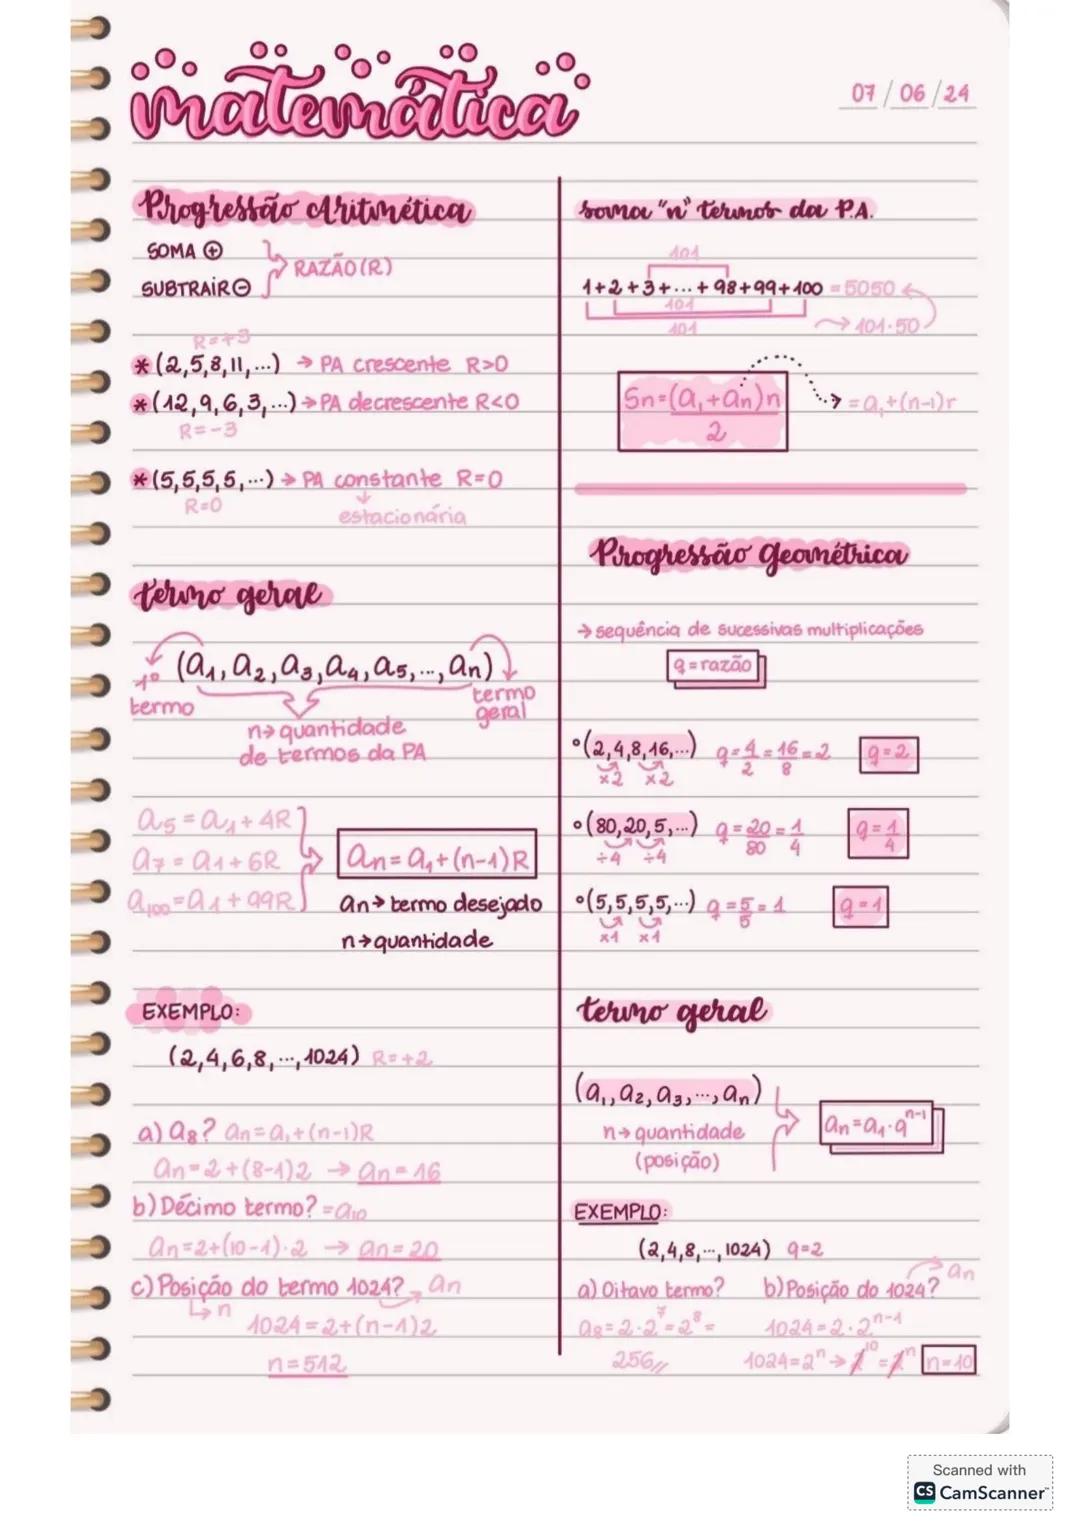 matemática
07/06/24
Progressão Aritmética
SOMA ⊕
SUBTRAIR ⊖
RAZÃO (R)
R=+3
* (2,5,8,11,...) → PA crescente R>0
* (12,9,6,3,...) → PA decrescente R<0
R=-3
* (5,5,5,5,...) → PA constante R=0
R=0
estacionária
termo geral
(a₁, a₂, a₃, a₄, a₅, ..., an)
1º termo
termo geral
n→ quantidade
de termos da PA
a₅ = a₁ + 4R
a₇ = a₁ + 6R
a₁₀₀ = a₁ + 99R
an = a₁ + (n-1)R
an → termo desejado
n → quantidade
EXEMPLO:
(2,4,6,8,...,1024) R=+2
a) a₈? an = a₁ + (n-1)R
an = 2 + (8-1)2 → an = 16
b) Décimo termo? = a₁₀
an = 2+(10-1)·2 → an = 20
c) Posição do termo 1024? → an
↳ n
1024 = 2+(n-1)2
n = 512
soma "n" termos da P.A.
101
1+2+3+...+98+99+100 = 5050
101
101
→ 101·50
Sn = (a₁+an)n
2
→ = a₁+(n-1)r
Progressão Geométrica
→ sequência de sucessivas multiplicações
q = razão
° (2,4,8,16,...) q = 4/2 = 16/8 = 2 q = 2
×2 ×2
° (80,20,5,...) q = 20/80 = 1/4 q = 1/4
÷4 ÷4
° (5,5,5,5,...) q = 5/5 = 1 q = 1
×1 ×1
termo geral
(a₁, a₂, a₃, ..., an)
n → quantidade
(posição)
an = a₁·qⁿ⁻¹
EXEMPLO:
(2,4,8,...,1024) q=2
a) Oitavo termo?
a₈ = 2·2⁷ = 2⁸ =
256//
b) Posição do 1024? → an
1024 = 2·2ⁿ⁻¹
1024 = 2ⁿ → 2¹⁰ = 2ⁿ n = 10
Scanned with
CS CamScanner™